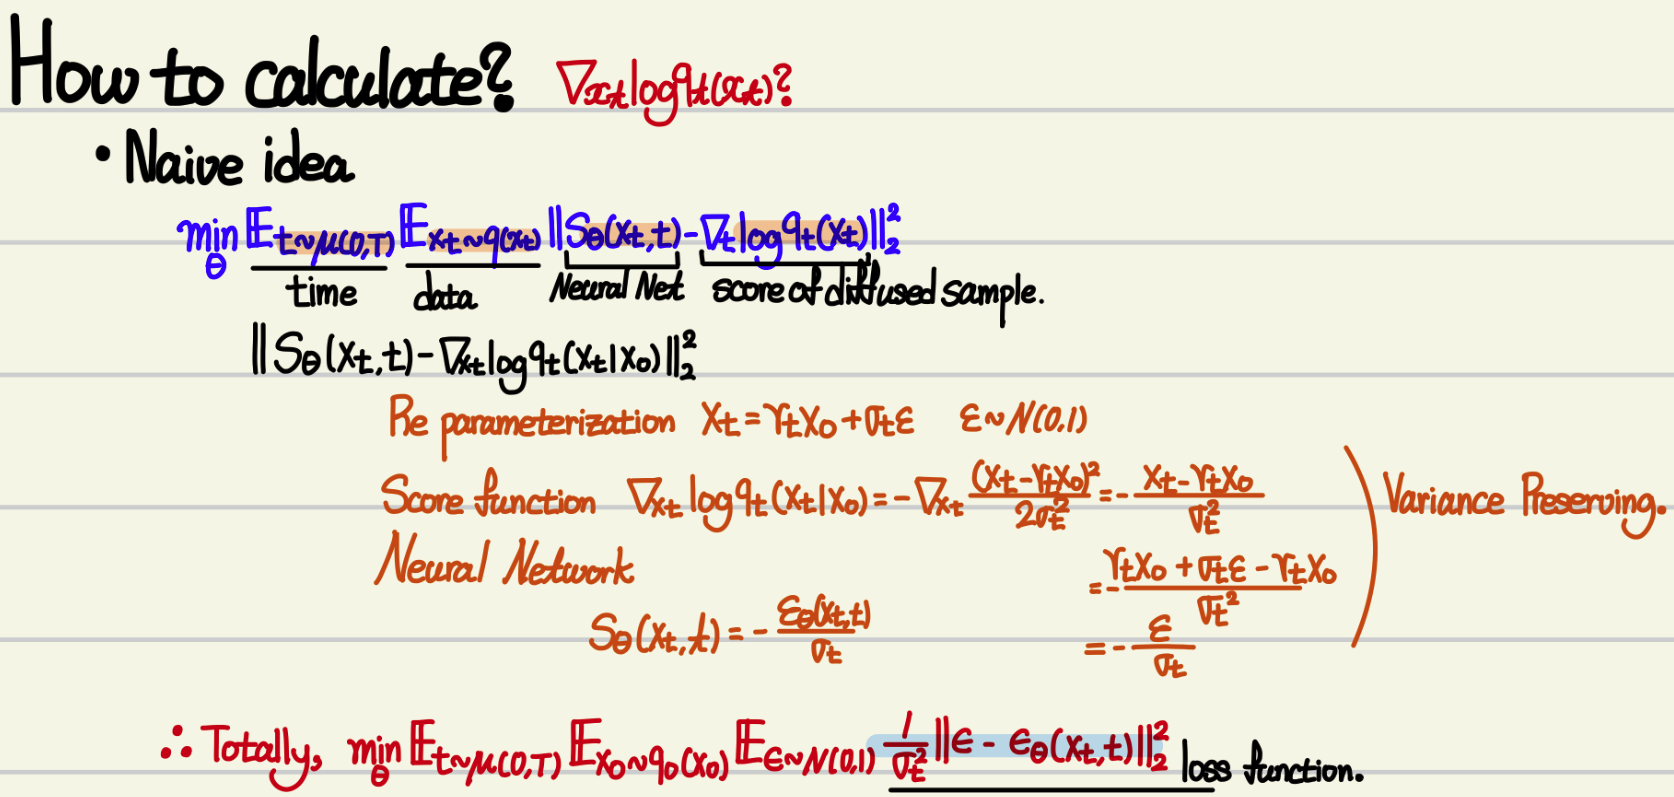 How to calculate? ∇xt log qt(xt)?
• Naive idea
min θ E t~μ(0,T) E xt~q(xt) ||Sθ(xt,t) - ∇t log qt(xt)||₂²
time data Neural Net score of diffused sample.
||Sθ(xt,t) - ∇xt log qt(xt|x0)||₂²
Re parameterization xt = γt x0 + σt ε ε~N(0,1)
Score function ∇xt log qt(xt|x0) = -∇xt (xt-γt x0)²/2σt² = - (xt-γt x0)/σt² Variance Preserving.
Neural Network = - (γt x0 + σt ε - γt x0)/σt²
Sθ(xt,t) = - εθ(xt,t)/σt = - ε/σt
∴ Totally, min θ E t~μ(0,T) E x0~q0(x0) E ε~N(0,1) 1/σt² ||ε - εθ(xt,t)||₂² loss function.